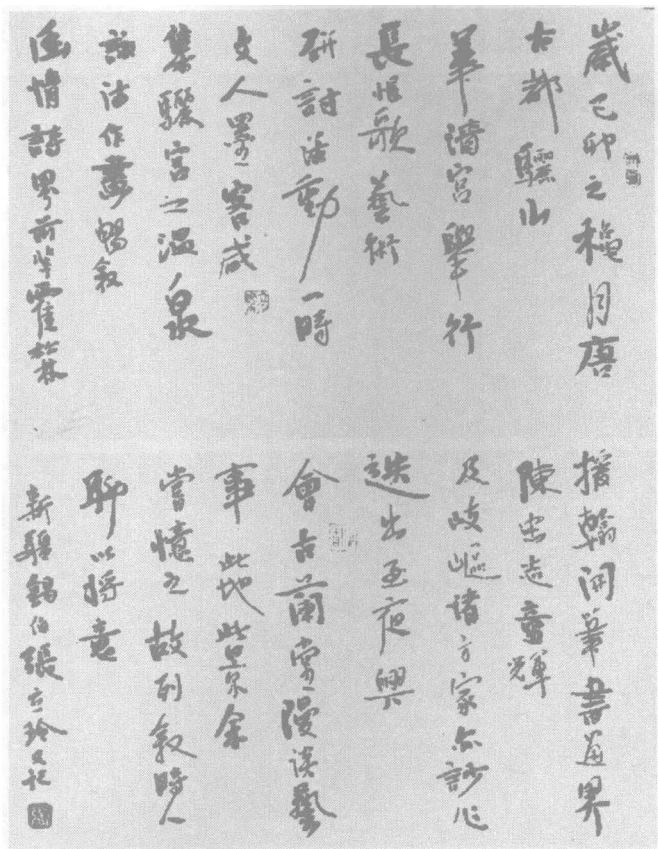 歲己卯之穐月唐
古都驪山
華清宮舉行
長恨歌藝術
研討活動一時
文人墨客咸
集驪宮之溫泉
詠詩作畫暢敘
幽情詩界前輩霍松林
援翰開筆書畫界
陳忠志童輝
及岐嶇諸方家亦妙作
迭出至夜興
會古蘭堂漫談藝
事此地此景余
當憶之故列敘時人
聊以將意
新疆錫伯張立玲又記